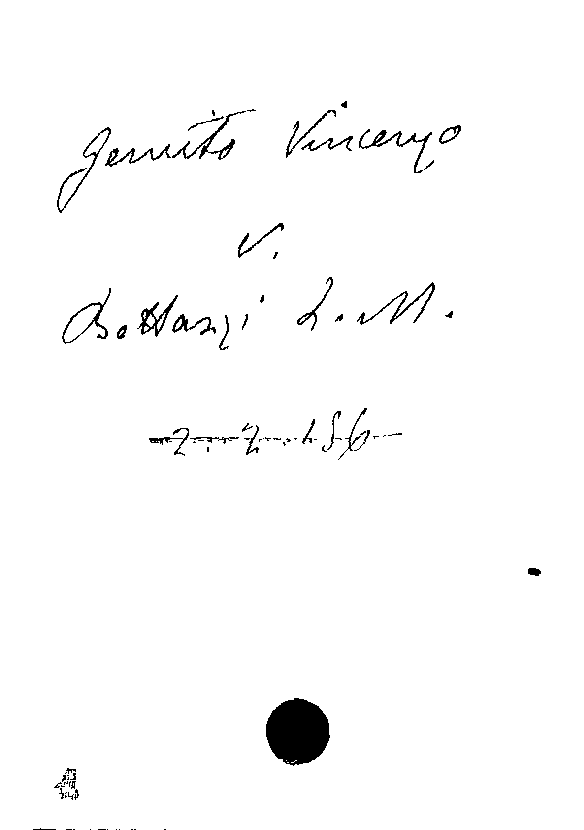 Gemito Vincenzo
v.
Bottazzi L. M.
2.2.156